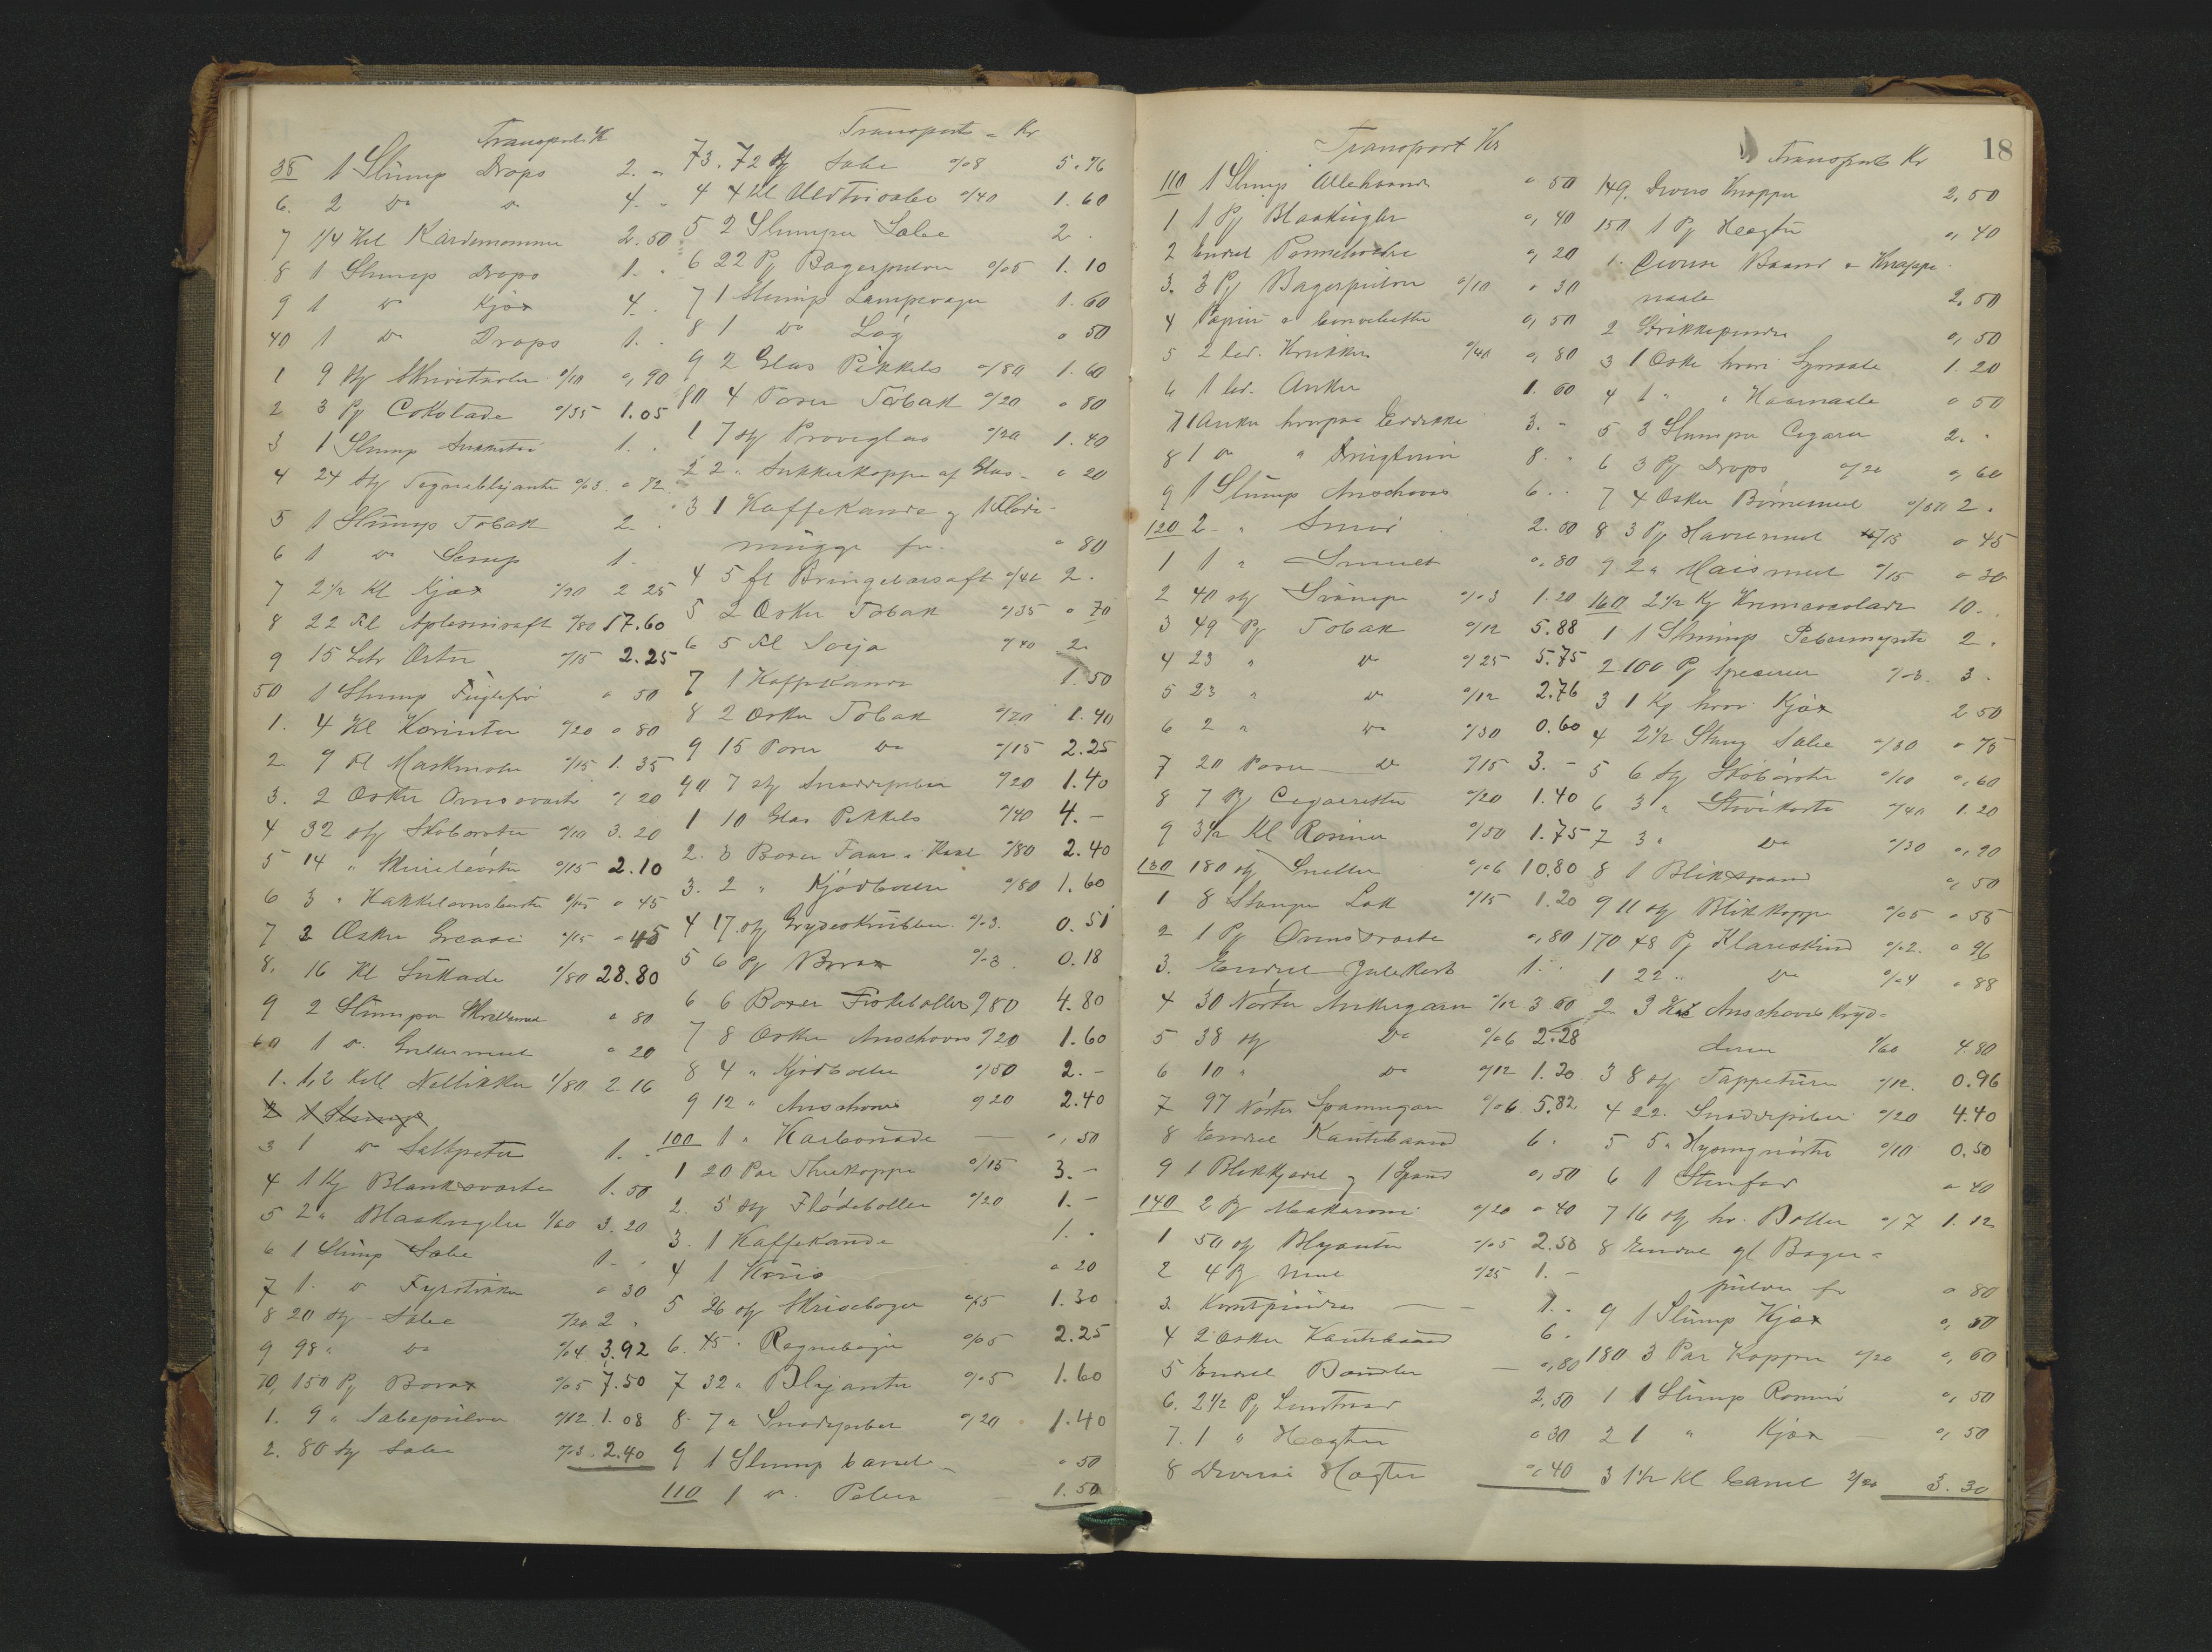 Transport Kr
35 1 Slump Drops 2. "
6. 2 do do 4. "
7 1/4 Kil Kardemomme 2.50
8 1 Slump Drops 1. "
9 1 do Kjæx 4. "
40 1 do Drops 1. "
1 9 stk Skrivetavler %10 ", 90
2 3 Pk Cokolade %35 1.05
3 1 Slump 1. "
4 24 stk Tegneblyanter %3 " 72
5 1 Slump Tobak 2 "
6 1 do Senep 1. "
7 2 1/2 Kl Kjæx %90 2 25
8 22 Fl Aplesinsaft %80 17.60
9 15 Letr %15 2.25
50 1 Slump Fuglefrø " 50
1. 4 Kl Korinter %20 " 80
2 9 Fl %15 1. 35
3. 2 Æsker Ovnsværte " 20
4 32 stk Skobørster %10 3.20
5 14 " Skurebørster %15 2.10
6 3 " Kakkelovnsbørster %15 " 45
7 3 Æsker %15 " 45
8. 16 Kl Sukade 1/80 28.80
9 2 Slumper " 80
60 1 do " 20
1. 1,2 Kill Nellikker 1/80 2 16
2 1 Slump
3 1 do Saltpeter 1. "
4 1 Kg Blanksværte 1. 50
5 2 " Blaakugler 1/60 3.20
6 1 Slump Sæbe 1. "
7 1. do Fyrstikker " 30
8 20 stk Sæbe %10 2 "
9 98 " do %4 3.92
70, 150 Pk Borax %5 7.50
1. 9 " Sæbepulver %12 1.08
2. 80 stk Sæbe %3 2.40
Transport " Kr
73. 72 stk Sæbe %8 5.76
4 4 Kl %40 1.60
5 2 Slumper Sæbe 2 .
6 22 Pk Bagerpulver %5 1.10
7 1 Slump Lampevæger 1.60
8 1 do Løg " 50
9 2 Glas Pikkels %80 1.60
80 4 Poser Tobak %20 " 80
1 7 stk Prøveglas %20 1.40
2 2 " Sukkerkopper af Glas " 20
3 1 Kaffekande og 1 Fløde-
mugge for " 80
4 5 fl Bringebærsaft %40 2 .
5 2 Æsker Tobak %35 " 70
6 5 Fl Soija %40 2 "
7 1 Kaffekande 1.50
8 2 Æsker Tobak %70 1.40
9 15 Poser do %15 2.25
90 7 stk Snadepiber %20 1.40
1 10 Glas Pikkels %40 4. -
2. 3 Boxer Faar i Kaal %80 2.40
3. 2 " Kjødboller %80 1.60
4 17 stk Grydeskrubber %3 0.51
5 6 Pk Borax %3 0.18
6 6 Boxer Fiskeboller %80 4.80
7 8 Æsker Anschovis %20 1.60
8 4 " Kjødboller %50 2. -
9 12 " Anschovis %20 2.40
100 1 " Karbonade — ", 50
1 20 Par Theekopper %15 3. -
2. 5 stk Flødeboller %20 1. -
3. 1 Kaffekande 1. "
4 1 Krus " 20
5 26 stk Skrivebøger %5 1.30
6. 45 " Regnebøger %5 2.25
7 32 " Blyanter %5 1.60
8. 7 " Snadepiber %20 1.40
9 1 Slump Canel — " 50
110 1 do Peber — 1.50
18
Transport Kr
110 1 Slump Allehaande " 50
1 1 Pk Blaakugler ", 40
2 Endel Penneholdere ", 20
3. 3 Pk Bagerpulver %10 " 30
4 Papir & Convolutter ", 50
5 2 led. Krukker %40 ", 80
6 1 led. Anker 1. 60
7 1 Anker hvorpaa Eddikke 3. -
8 1 do " 8. "
9 1 Slump Anschovis 6. "
120 2 " Smør 2.00
1 1 " ", 80
2 40 stk %3 1.20
3 49 Pk Tobak %12 5.88
4 23 " do %25 5.75
5 23 " do %12 2.76
6 2 " do %30 0.60
7 20 Poser do %15 3. -
8 7 Pk Cigaretter %20 1.40
9 3 1/2 Kl Rosiner %50 1.75
130 180 stk Sneller %6 10.80
1 8 Stanger Lak %15 1.20
2 1 Pk Ovnsværte ", 80
3. Endel Julekort 1. "
4 30 Nøster Ankergarn %12 3 60
5 38 stk do %6 2.28
6 10 " do %12 1.20
7 97 Nøster %6 5.82
8 Endel Kantebaand 6 "
9 1 Blikkjedel og 1 Spand ", 50
140 2 Pk Makaroni %20 " 40
1 50 stk Blyanter %5 2.50
2 4 Pk Meel %25 1. -
3. — 1. "
4 2 Æsker Kantebaand 6 .
5 Endel Bændler — ", 80
6. 2 1/2 Pk 2,50
7. 1 " Hægter " 30
8 Diverse Hægter ", 40
Transport Kr
149. Divers Knapper 2,50
150 1 Pk Hægter ", 40
1. Diverse Baand & Knappe
naale 2.50
2 Strikkepinder ", 50
3 1 Æske hvori Synaale 1.20
4 1 " " Haarnaale " 50
5 3 Slumper Cigarer 2. "
6 3 Pk Drops %20 ", 60
7 4 Æsker Børnemeel %50 2 .
8 3 Pk Havremeel %15 " 45
9 2 " Maismeel %15 " 30
160 2 1/2 Kg 10. .
1 1 Slump Pebermynte 2 .
2 100 Pk %3 3 .
3 1 Kg hvor. Kjæx 2 50
4 2 1/2 Stang Sæbe %30 " 75
5 6 stk Skobørster %10 ", 60
6 3 " Støvekoste %40 1.20
7 3 " do %30 ", 90
8 1 Blikspand ", 50
9 11 stk Blikkopper %5 " 55
170 48 Pk Klareskind %2 " 96
1 22 " do %4 " 88
2 3 Kil Anschovis Kryd-
derier 1/60 4.80
3 8 stk %12. 0.96
4 22. Snadepiber %20 4.40
5 5 " %10 0.50
6 1 Stenfad " 40
7 16 stk hv. Boller %7 1.12
8 Endel gl Bager-
pulver for " 80
9 1 Slump Kjæx ", 80
180 3 Par Kopper %20 ", 60
1 1 Slump Rosiner ", 50
2 1 " Kjæx — ", 50
3 1 1/2 Kl Canel 2/20 3.30